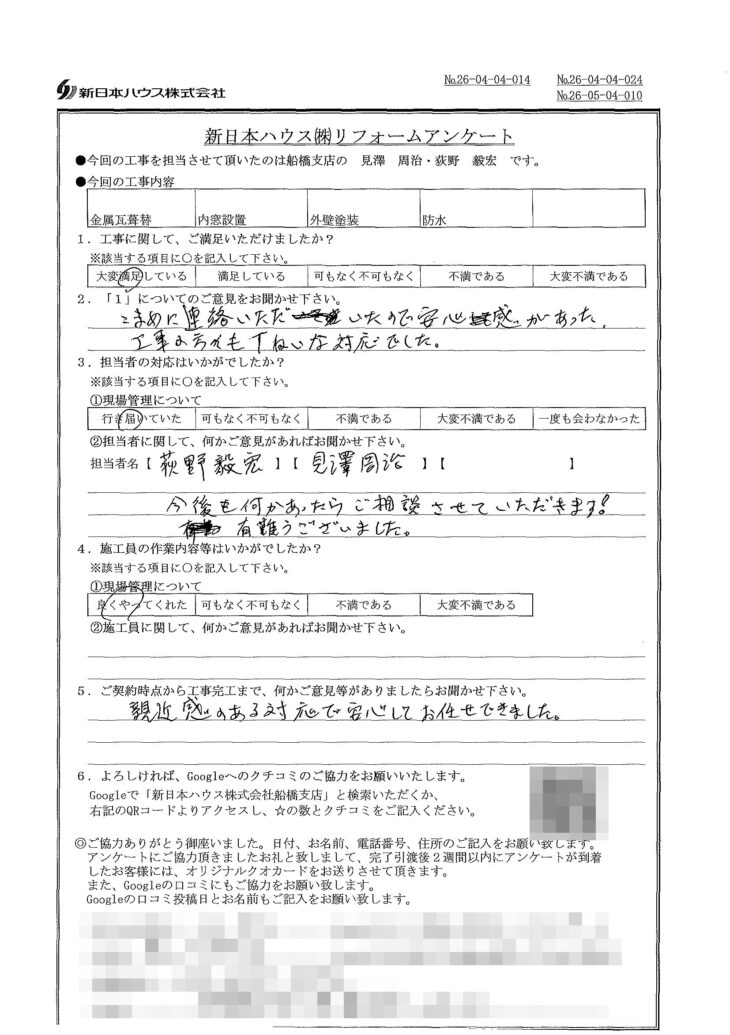 新日本ハウス株式会社
No.26-04-04-014 No.26-04-04-024
No.26-05-04-010
新日本ハウス㈱リフォームアンケート
●今回の工事を担当させて頂いたのは船橋支店の 見澤 周治・荻野 毅宏 です。
●今回の工事内容
金属瓦葺替 内窓設置 外壁塗装 防水
1．工事に関して、ご満足いただけましたか？
※該当する項目に○を記入して下さい。
大変満足している 満足している 可もなく不可もなく 不満である 大変不満である
2．「1」についてのご意見をお聞かせ下さい。
こまめに連絡いただいたので安心感があった。
工事の方々もていねいな対応でした。
3．担当者の対応はいかがでしたか？
※該当する項目に○を記入して下さい。
①現場管理について
行き届いていた 可もなく不可もなく 不満である 大変不満である 一度も会わなかった
②担当者に関して、何かご意見があればお聞かせ下さい。
担当者名【 荻野毅宏 】【 見澤周治 】【 】
今後も何かあったらご相談させていただきます！
有難うございました。
4．施工員の作業内容等はいかがでしたか？
※該当する項目に○を記入して下さい。
①現場管理について
良くやってくれた 可もなく不可もなく 不満である 大変不満である
②施工員に関して、何かご意見があればお聞かせ下さい。
5．ご契約時点から工事完工まで、何かご意見等がありましたらお聞かせ下さい。
親近感のある対応で安心してお任せできました。
6．よろしければ、Googleへのクチコミのご協力をお願いいたします。
Googleで「新日本ハウス株式会社船橋支店」と検索いただくか、
右記のQRコードよりアクセスし、☆の数とクチコミをご記入ください。
◎ご協力ありがとう御座いました。日付、お名前、電話番号、住所のご記入をお願い致します。
アンケートにご協力頂きましたお礼と致しまして、完了引渡後２週間以内にアンケートが到着
したお客様には、オリジナルクオカードをお送りさせて頂きます。
また、Googleの口コミにもご協力をお願い致します。
Googleの口コミ投稿日とお名前もご記入をお願い致します。